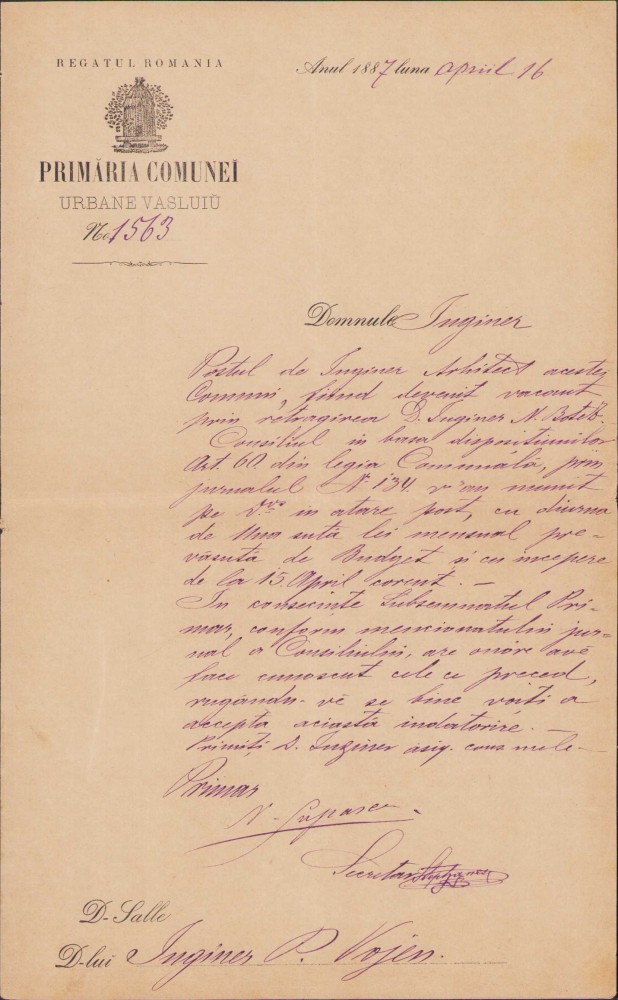 REGATUL ROMANIA
Anul 1887 luna April 16
PRIMĂRIA COMUNEĬ
URBANE VASLUIŬ
No 1563
Domnule Inginer
Postul de Inginer Arhitect acestei
Comuni, fiind devenit vacant
prin retragirea D. Inginer N. Botéz.
Consiliul in basa dispositiunilor
Art. 60. din legia Comunală, prin
jurnalul N. 134. v'au numit
pe Dvs in atare post, cu diurna
de Una sută lei mensual pre=
văsută de Budget si cu incepere
de la 15. April corent. —
In consecinte Subsemnatul Pri=
mar, conform mencionatului jur=
nal a Consiliului, are onóre avĕ
face cunoscut cele ce preced,
rugându-vĕ se bine voiti a
accepta aciastă indatorire. —
Primiți D. Inginer asig. cons. mele —
Primar
Secretar
D-Salle
D-lui Inginer P. Vojen.